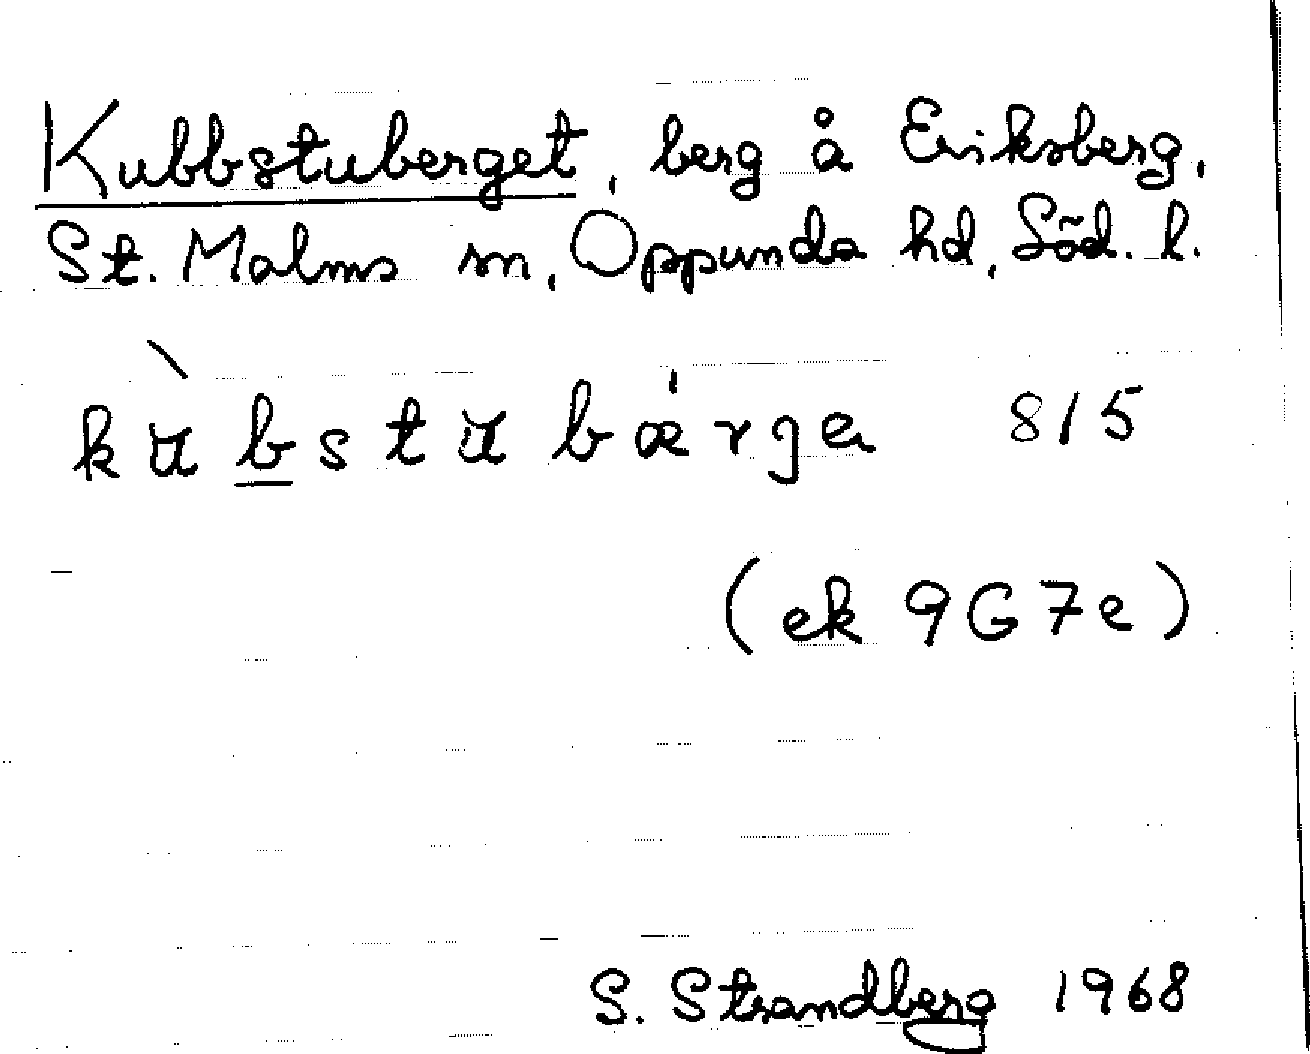 Kubbstuberget, berg å Eriksberg,
St. Malms sn, Oppunda hd, Söd. l.
kùbstubǽrgə 8/5
(ek 9G7e)
S. Strandberg 1968